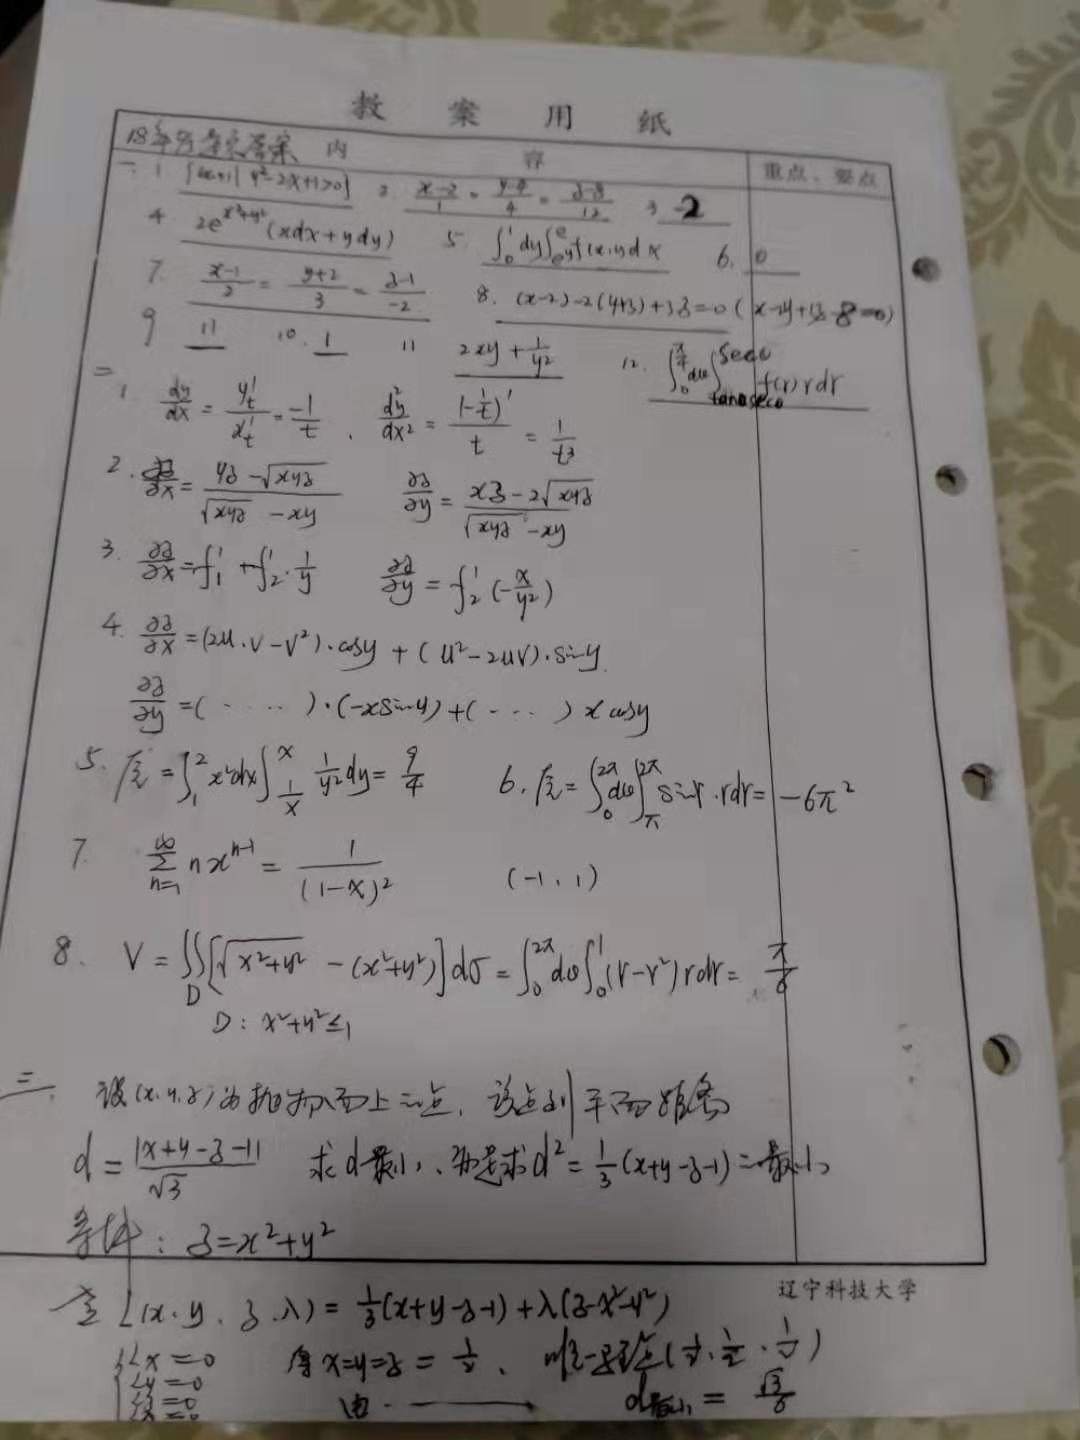 教案用纸
18年 答案 内容
重点、要点
一 1 {(x,y)| y²-2x+1>0} 2. (x-2)/1 = (y-4)/4 = (z-8)/12 3 -2
4 2e^(x²+y²)(xdx+ydy) 5. ∫₀¹dy∫_(e^y)^e f(x,y)dx 6. 0
7. (x-1)/2 = (y+2)/3 = (z-1)/-2 8. (x-2)-2(y+3)+3z=0 (x-2y+3z-8=0)
9 11 10. 1 11 2xy+1/y² 12. ∫₀^(π/4)dθ∫_(tanθsecθ)^(secθ) f(r)rdr
二
1. dy/dx = y't/x't = -1/t . d²y/dx² = (-1/t)'/t = 1/t³
2. ∂z/∂x = (yz-√xyz)/(√xyz-xy) ∂z/∂y = (xz-2√xyz)/(√xyz-xy)
3. ∂z/∂x = f₁'+f₂'·1/y ∂z/∂y = f₂'(-x/y²)
4. ∂z/∂x = (2u·v-v²)·cosy+(u²-2uv)·siny
∂z/∂y = (·····)·(-xsiny)+(····)xcosy
5. 原式 = ∫₁²x²dx∫_(1/x)^x 1/y² dy = 9/4 6. 原式 = ∫₀^(2π)dθ∫_π^(2π) sinr·rdr = -6π²
7. ∑_(n=1)^∞ nx^(n-1) = 1/(1-x)² (-1,1)
8. V = ∬_D[√x²+y² -(x²+y²)]dσ = ∫₀^(2π)dθ∫₀¹(r-r²)rdr = π/6
D: x²+y²≤1
三. 设(x,y,z)为抛物面上一点, 该点到平面距离
d = |x+y-z-1|/√3 求d最小, 就是求d² = 1/3(x+y-z-1)²最小
条件: z=x²+y²
辽宁科技大学
令 L(x,y,z,λ) = 1/3(x+y-z-1)+λ(z-x²-y²)
{Lx=0 得 x=y=z=1/2, 唯一驻点(1/2,1/2,1/2)
Ly=0
Lz=0 由 d最小 = √3/6